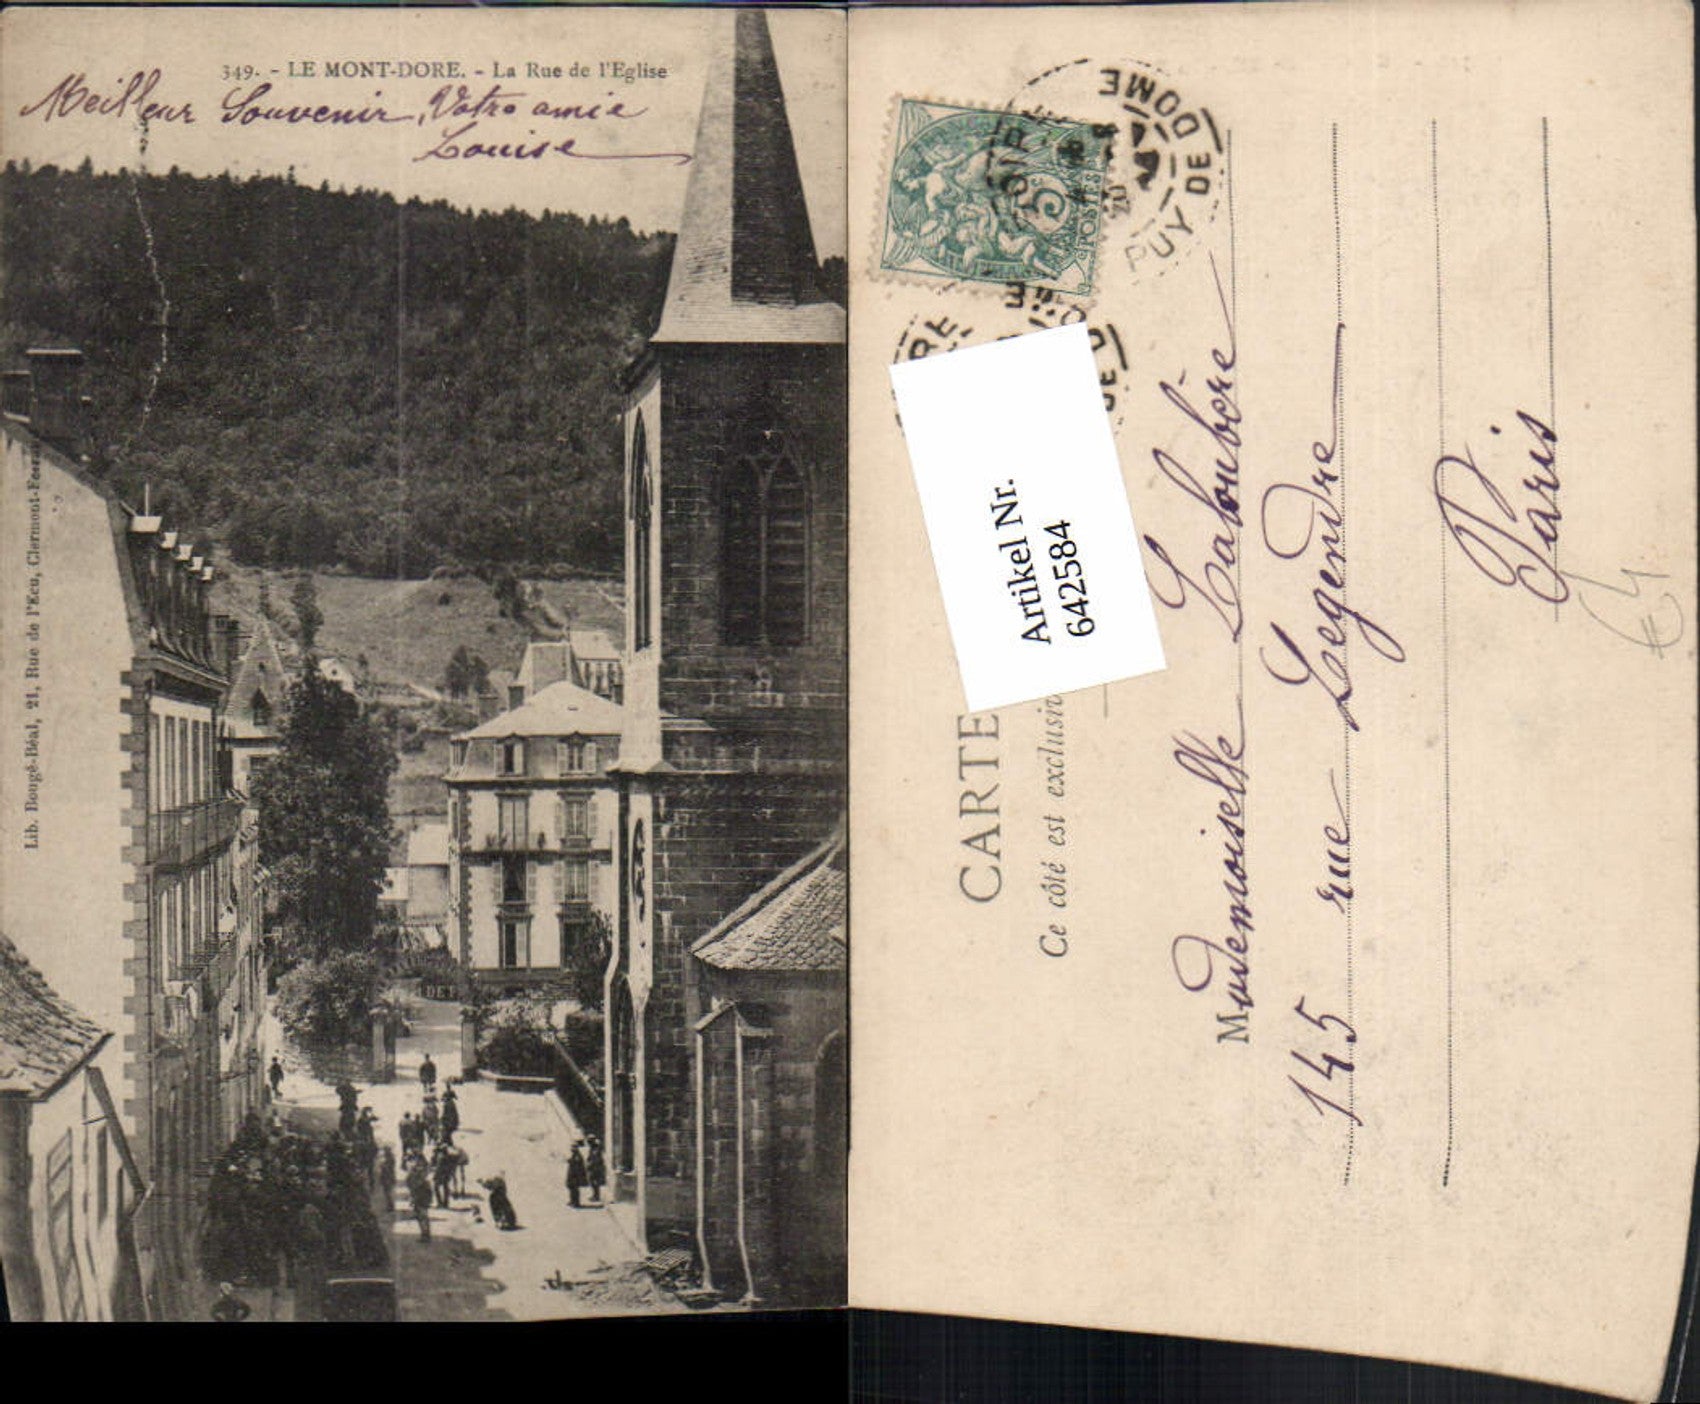 349. - LE MONT-DORE. - La Rue de l'Eglise
Meilleur Souvenir, Votre amie
Louise
Lib. Bougé-Béal, 21, Rue de l'Ecu, Clermont-Ferra
DE
PUY DE DOME
20
5
POSTES
DE D
Artikel Nr.
642584
CARTE
Ce côté est exclusiv
Mademoiselle Laloubère
145 rue Legendre
Paris
€ 4.